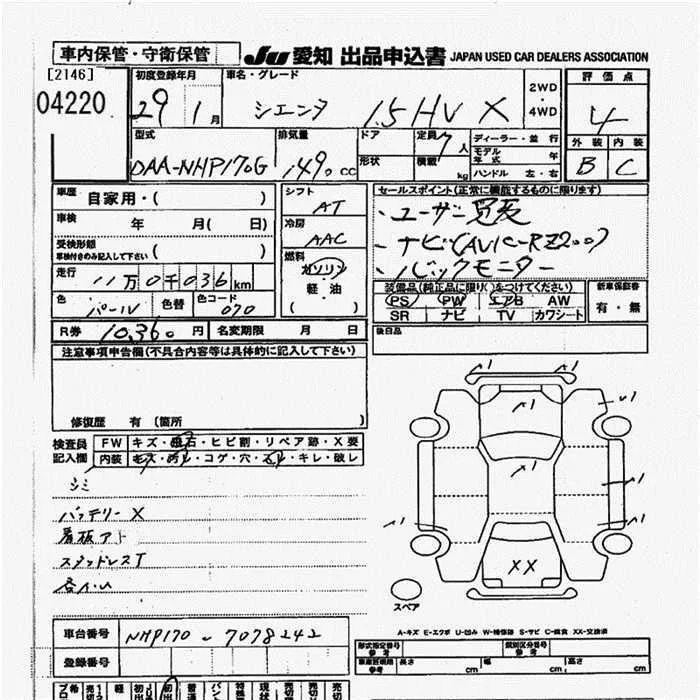 車内保管・守衛保管 JU 愛知 出品申込書 JAPAN USED CAR DEALERS ASSOCIATION
[2146] 初度登録年月 車名・グレード 2WD・4WD 評価点
04220 29年 1月 シエンタ 1.5 HV X 4
型式 排気量 ドア 定員 7人 ディーラー・並行 外装 内装
DAA-NHP170G 1490 cc 形状 積載 kg モデル年式 年 B C
ハンドル 左・右
車歴 自家用・( ) シフト AT セールスポイント(正常に機能するものに限ります)
車検 年 月( 日) 冷房 AAC ・ユーザー買取
受検形態 車検付きのみ記入して下さい ( ) 燃料 ・ナビ(AVIC-RZ200)
走行 11万0千036km ガソリン ・バックモニター
軽・油 装備品(純正品に限り○をつけてください) 新車保証書
色 パール 色替 色コード 070 PS PW エアB AW 有・無
SR ナビ TV カワシート
R券 10,360円 名変期限 月 日 後日品
注意事項申告欄(不具合内容等は具体的に記入して下さい)
修復歴 有 (箇所
検査員記入欄 FW キズ・飛石・ヒビ割・リペア跡・X要
内装 キズ・汚れ・コゲ・穴・スレ・キレ・破レ
シミ
バッテリーX
看板アト
スタッドレスT
A1 A1 U1 A1 A1 A1 A1 A1
XX
スペア
A-キズ E-エクボ U-凹み W-補修跡 S-サビ C-腐食 XX-交換済
車台番号 NHP170-7078242
登録番号
形式指定番号 参考 類別区分番号 参考
車庫証明用 参考 長さ cm 幅 cm 高さ cm